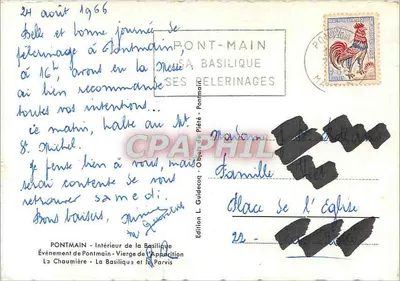 24 août 1966
Belle et bonne journée de
pèlerinage à Pontmain,
à 16h, avons eu la Messe
ai bien recommandé
toutes vos intentions...
ce matin, halte au Mt
St. Michel.
Je pense bien à vous, mais
serai contente de vous
retrouver samedi.
Bons baisers,
PONTMAIN - Intérieur de la Basilique
Événement de Pontmain - Vierge de l'Apparition
La Chaumière - La Basilique et le Parvis
Edition L. Guidecoq - Objets de Piété - Pontmain
PONT-MAIN
SA BASILIQUE
SES PELERINAGES
CPAPHIL
Madame
Famille
Place de l'Eglise
22 -